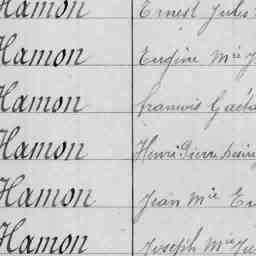 Hamon Ernest Jules
Hamon Eugène Mie J
Hamon francois Gaëta
Hamon Henri Pierre Désiré
Hamon Jean Mie Eu
Hamon Joseph Mie Ju